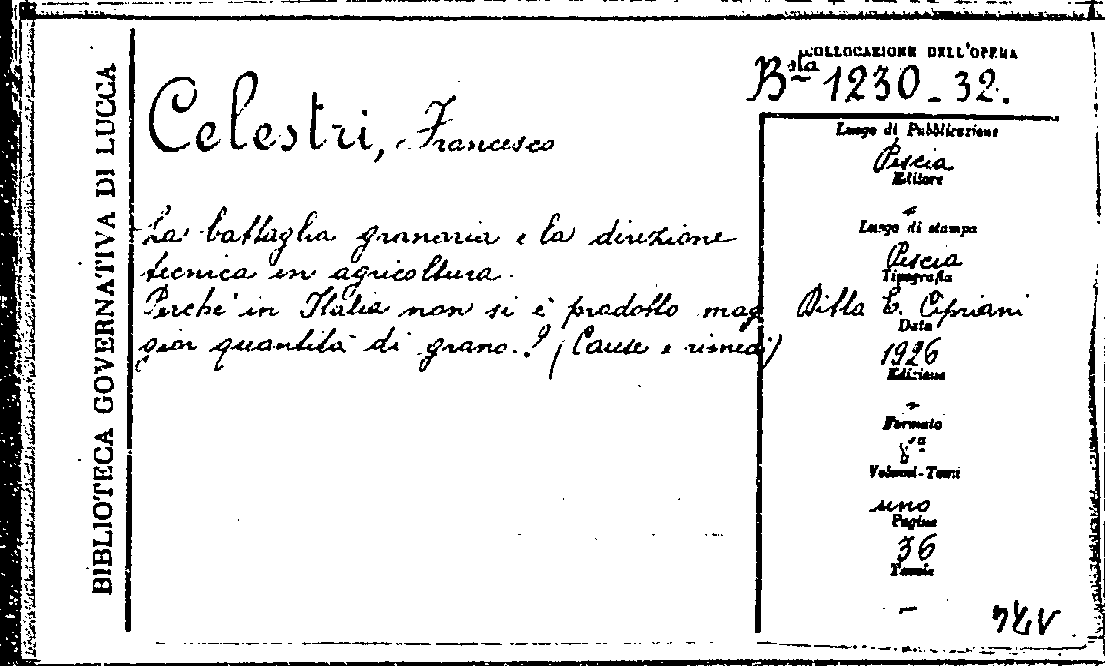 BIBLIOTECA GOVERNATIVA DI LUCCA
Celestri, Francesco
La battaglia granaria e la direzione
tecnica in agricoltura.
Perchè in Italia non si è prodotto mag
gior quantità di grano.? (Cause e rimedi)
COLLOCAZIONE DELL'OPERA
Bsta 1230-32.
Luogo di Pubblicazione
Pescia
Editore
-
Luogo di stampa
Pescia
Tipografia
Ditta E. Cipriani
Data
1926
Edizione
-
Formato
8º
Volumi-Tomi
uno
Pagine
36
Tavole
-